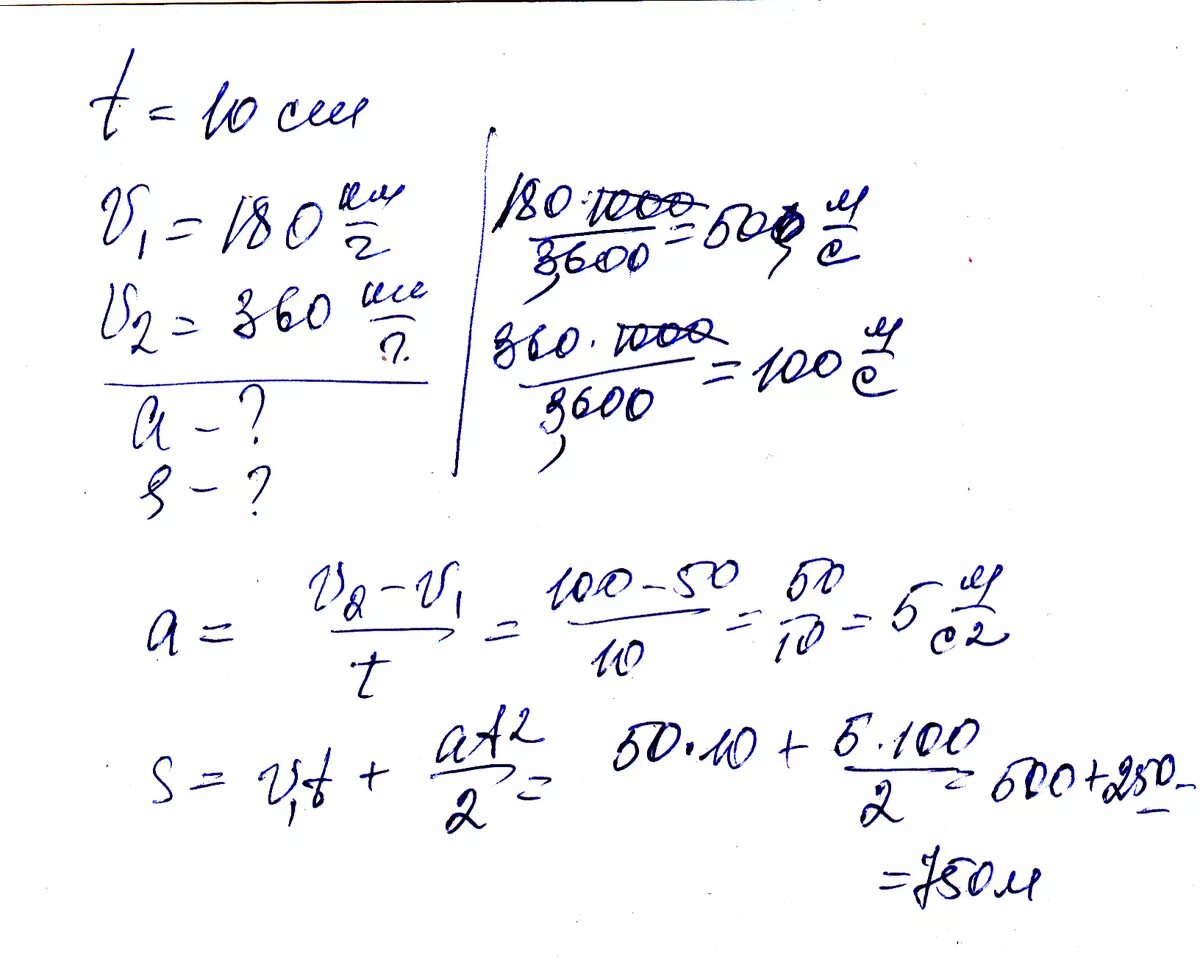 t = 10 см
v₁ = 180 км/г
v₂ = 360 км/г
a – ?
s – ?
180·1000/3600 = 50 м/с
360·1000/3600 = 100 м/с
a = (v₂ – v₁)/t = (100 – 50)/10 = 50/10 = 5 м/с2
s = v₁t + at²/2 = 50·10 + 5·100/2 = 500 + 250 –
= 750 м